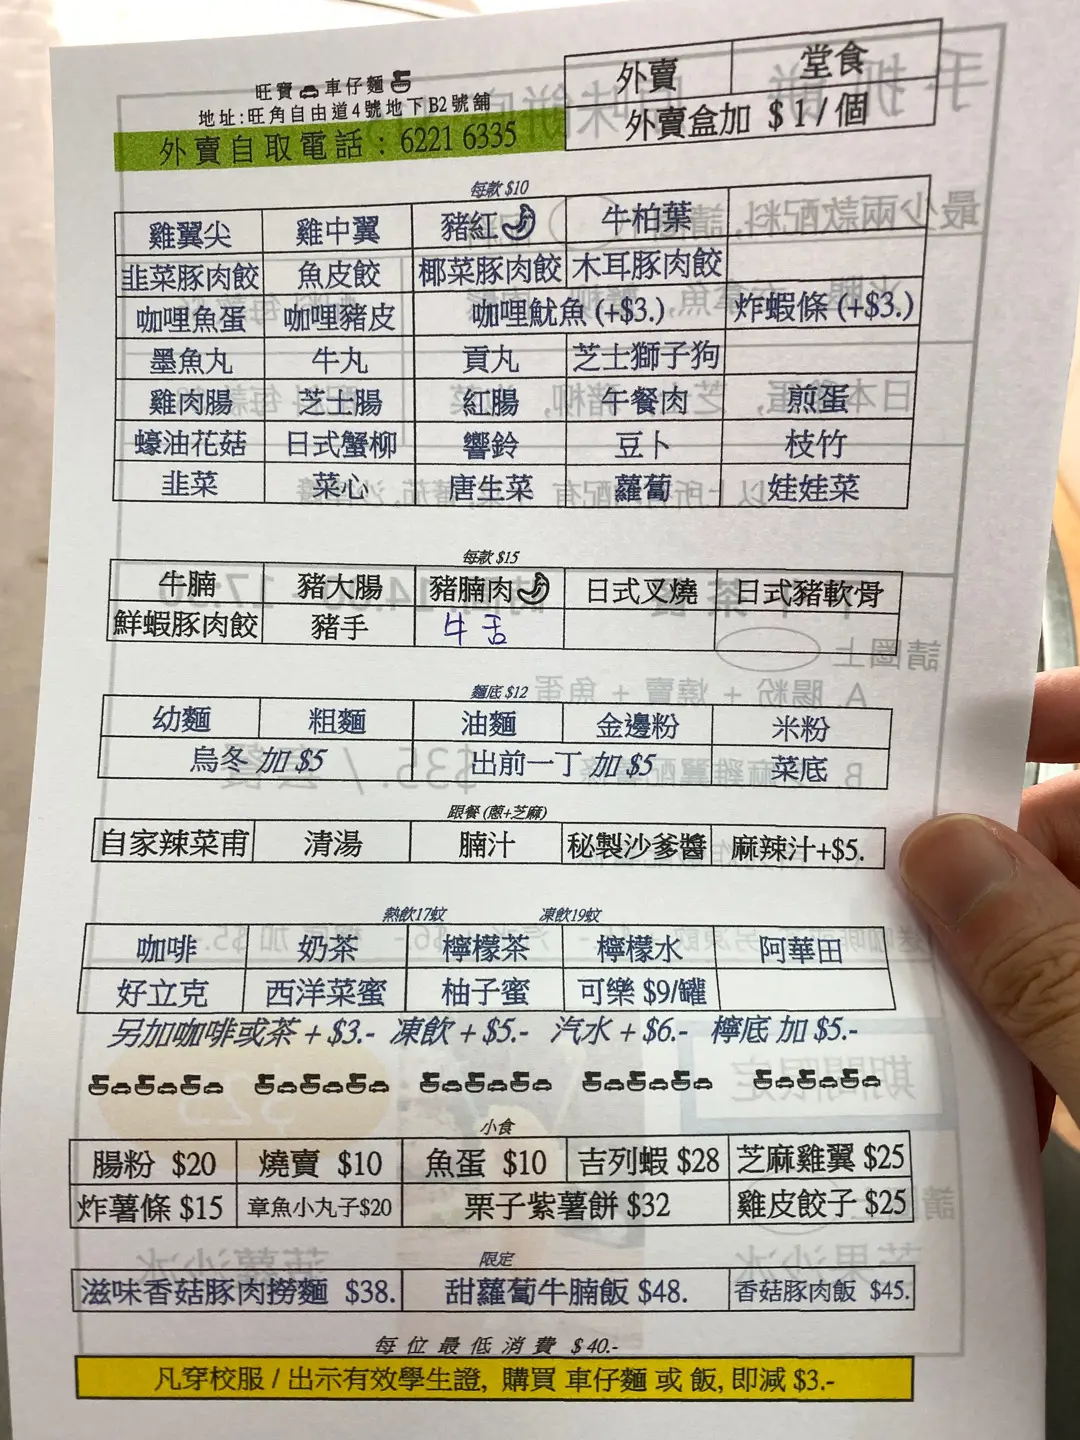 旺寶 車仔麵
地址:旺角自由道4號地下B2號舖
外賣自取電話:6221 6335
外賣 堂食
外賣盒加 $1/個
每款 $10
雞翼尖 雞中翼 豬紅 牛柏葉
韭菜豚肉餃 魚皮餃 椰菜豚肉餃 木耳豚肉餃
咖哩魚蛋 咖哩豬皮 咖哩魷魚 (+$3.) 炸蝦條 (+$3.)
墨魚丸 牛丸 貢丸 芝士獅子狗
雞肉腸 芝士腸 紅腸 午餐肉 煎蛋
蠔油花菇 日式蟹柳 響鈴 豆卜 枝竹
韭菜 菜心 唐生菜 蘿蔔 娃娃菜
每款 $15
牛腩 豬大腸 豬腩肉 日式叉燒 日式豬軟骨
鮮蝦豚肉餃 豬手 牛舌
麵底 $12
幼麵 粗麵 油麵 金邊粉 米粉
烏冬 加 $5 出前一丁 加 $5 菜底
跟餐 (蔥+芝麻)
自家辣菜甫 清湯 腩汁 秘製沙爹醬 麻辣汁+$5.
熱飲17蚊 凍飲19蚊
咖啡 奶茶 檸檬茶 檸檬水 阿華田
好立克 西洋菜蜜 柚子蜜 可樂 $9/罐
另加咖啡或茶 + $3.- 凍飲 + $5.- 汽水 + $6.- 檸底 加 $5.-
小食
腸粉 $20 燒賣 $10 魚蛋 $10 吉列蝦 $28 芝麻雞翼 $25
炸薯條 $15 章魚小丸子$20 栗子紫薯餅 $32 雞皮餃子 $25
限定
滋味香菇豚肉撈麵 $38. 甜蘿蔔牛腩飯 $48. 香菇豚肉飯 $45.
每位最低消費 $40.-
凡穿校服 / 出示有效學生證, 購買 車仔麵 或 飯, 即減 $3.-